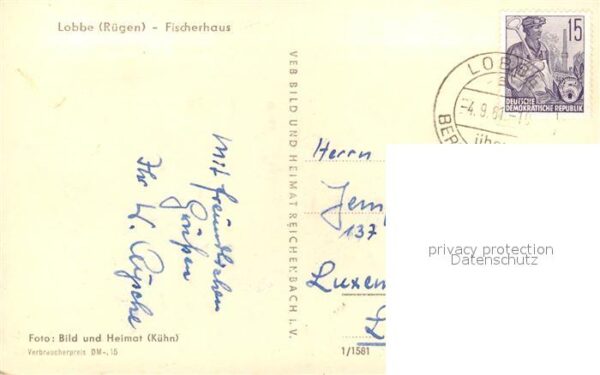 Lobbe (Rügen) - Fischerhaus
15
DEUTSCHE
DEMOKRATISCHE REPUBLIK
LOBBE
-4.9.61.-1
BER
über
VEB BILD UND HEIMAT REICHENBACH i. V.
Mit freundlichen
Grüßen
Ihr W.
Herrn
137
Luxem
privacy protection
Datenschutz
Foto: Bild und Heimat (Kühn)
Verbraucherpreis DM -,15
1/1581